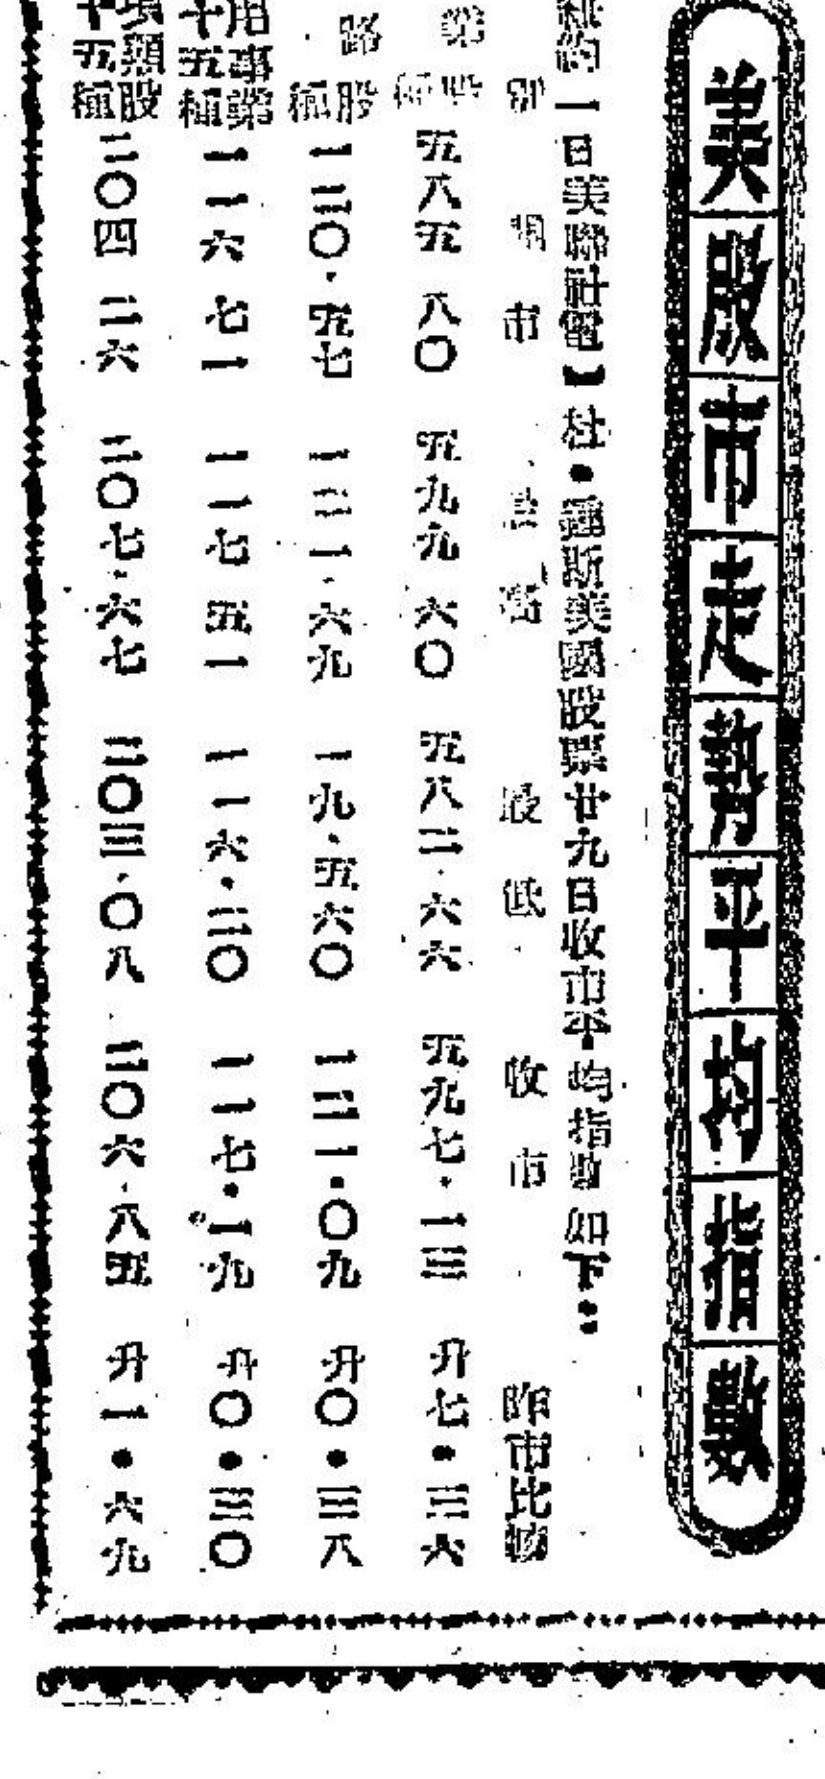 美股市走勢平均指數
紐約一日美聯社電】杜•鍾斯美國股票廿九日收市平均指數如下：
別 開市 最高 最低 收市 昨市比較
業股種 五八五 八〇 五九九 六〇 五八二·六六 五九七·一三 升七•三六
路股種 一二〇·五七 一二一·六九 一九·五六〇 一二一•〇九 升〇•三八
用事業十五種 一一六 七一 一一七 五一 一一六•二〇 一一七•一九 升〇•三〇
項類股十五種 二〇四 二六 二〇七·六七 二〇三·〇八 二〇六·八五 升一•六九